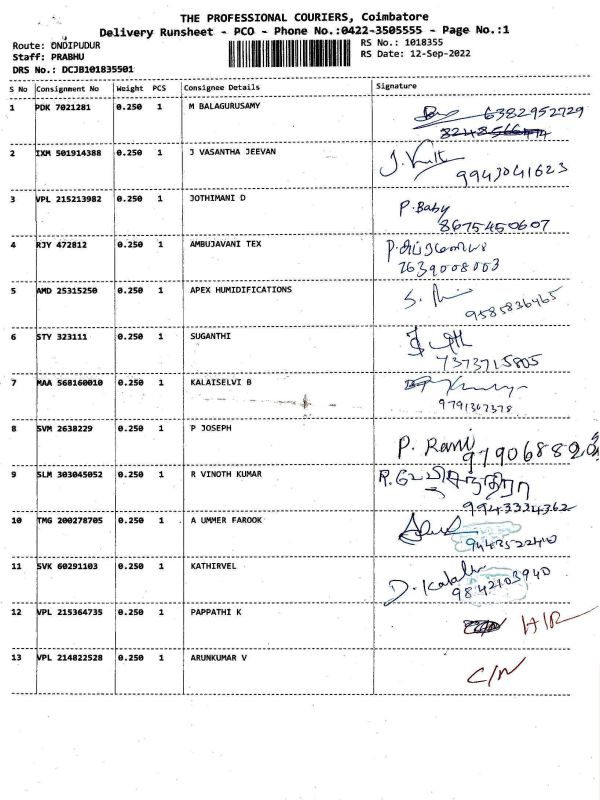 THE PROFESSIONAL COURIERS, Coimbatore
Delivery Runsheet - PCO - Phone No.:0422-3505555 - Page No.:1
Route: ONDIPUDUR
RS No.: 1018355
Staff: PRABHU
RS Date: 12-Sep-2022
DRS No.: DCJB101835501
S No Consignment No Weight PCS Consignee Details Signature
1 PDK 7021281 0.250 1 M BALAGURUSAMY 6382952729
2 IXM 501914388 0.250 1 J VASANTHA JEEVAN
9943041623
3 VPL 215213982 0.250 1 JOTHIMANI D P. Baby
8675450607
4 RJY 472812 0.250 1 AMBUJAVANI TEX
7639008003
5 AMD 25315250 0.250 1 APEX HUMIDIFICATIONS
9585836465
6 STY 323111 0.250 1 SUGANTHI
7373715805
7 MAA 568160010 0.250 1 KALAISELVI B
9791367378
8 SVM 2638229 0.250 1 P JOSEPH P. Rani
9 SLM 303045052 0.250 1 R VINOTH KUMAR
99943334362
10 TMG 200278705 0.250 1 A UMMER FAROOK
11 SVK 60291103 0.250 1 KATHIRVEL
9842103940
12 VPL 215364735 0.250 1 PAPPATHI K
13 VPL 214822528 0.250 1 ARUNKUMAR V C/N